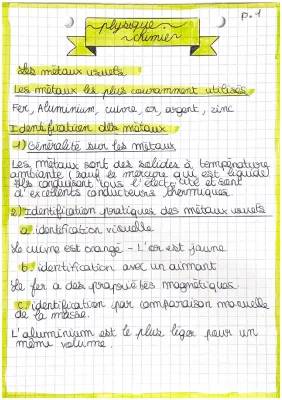 p.1
physique
chimie
Les métaux usuels
Les métaux les plus couramment utilisés
Fer, Aluminium, cuivre, or, argent, zinc
Identification des métaux
1) Généralité sur les métaux
Les métaux sont des solides à température
ambiante (sauf le mercure qui est liquide)
Ils conduisent tous l'électricité et sont
d'excellents conducteurs thermiques.
2) Identification pratiques des métaux usuels
a. identification visuelle
Le cuivre est orangé - L'or est jaune
b. identification avec un aimant
Le fer a des propriétés magnétiques.
c. identification par comparaison manuelle
de la masse.
L'aluminium est le plus léger pour un
même volume.